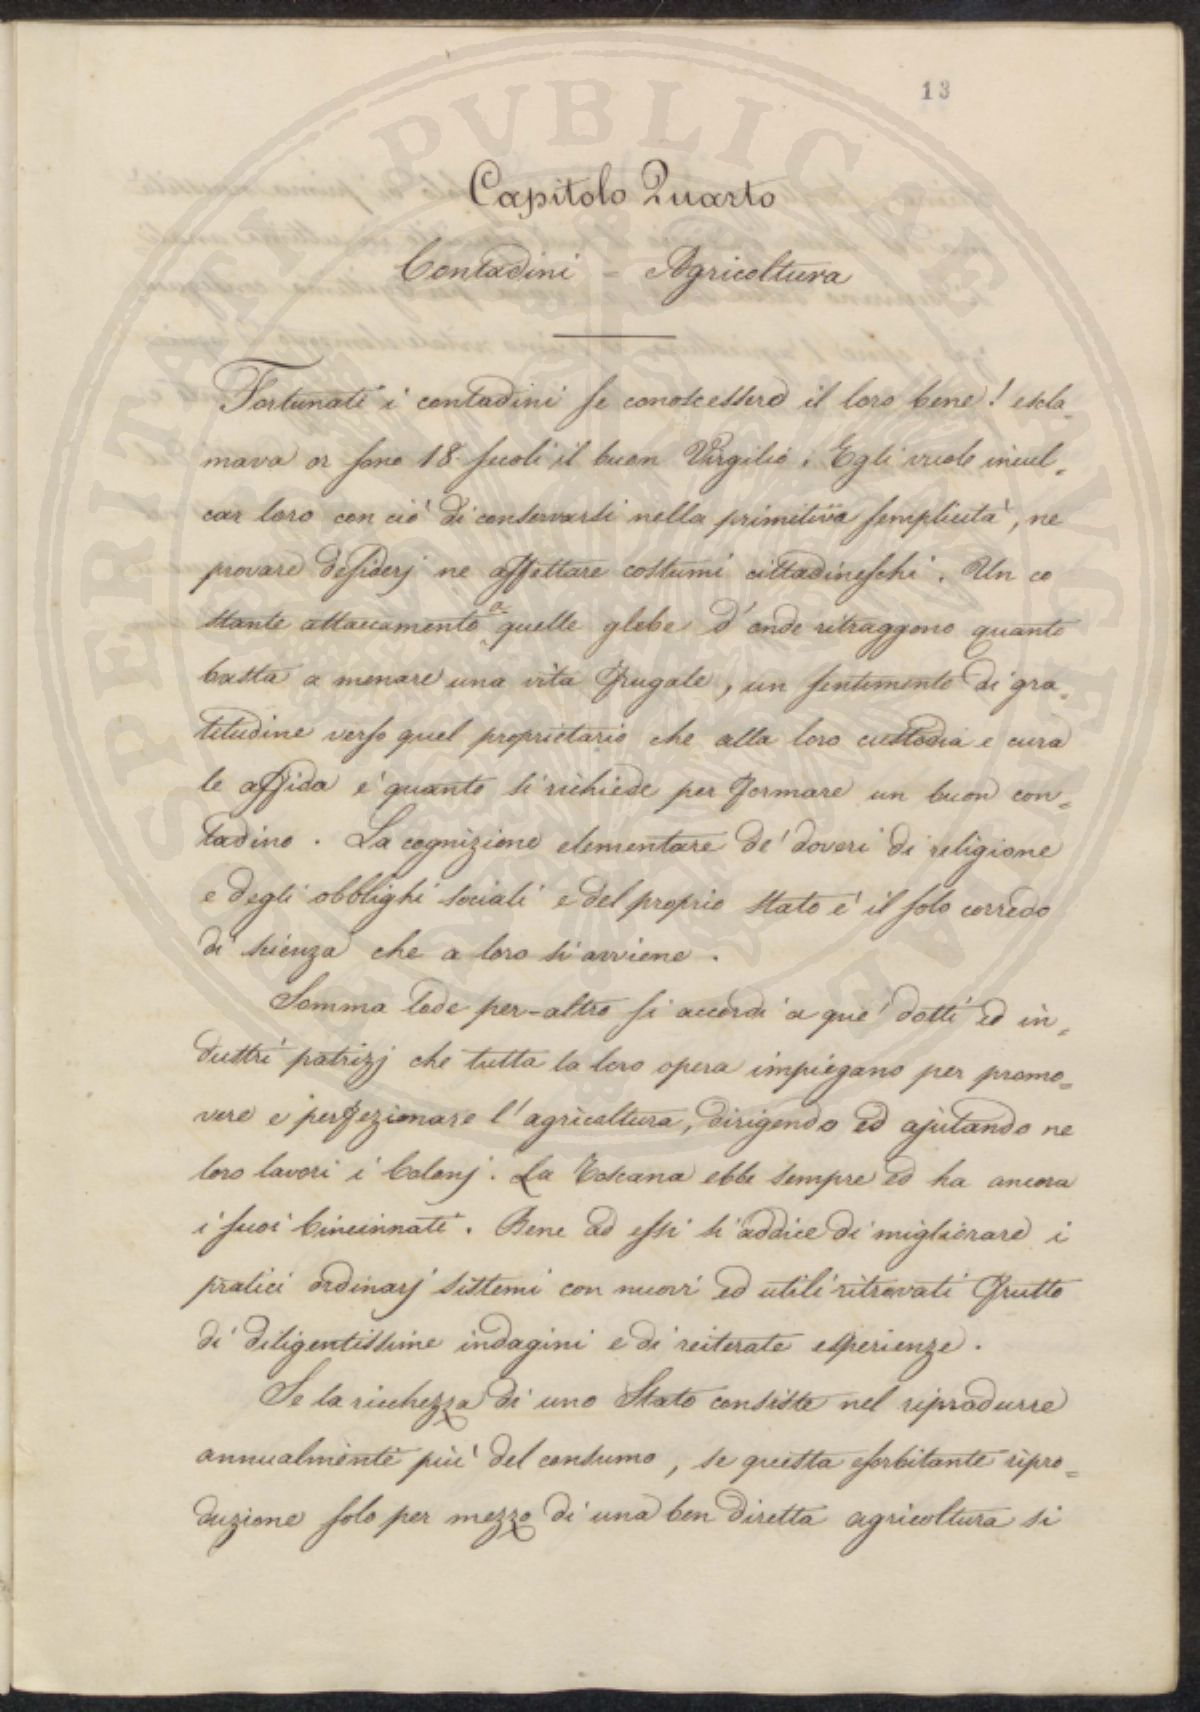 13
Capitolo Quarto
Contadini = Agricoltura
Fortunati i contadini se conoscessero il loro bene! escla=
mava or sono 18 secoli il buon Virgilio. Egli vuole incul=
car loro con ciò di conservarsi nella primitiva semplicità, ne
provare desiderj ne affettare costumi cittadineschi. Un co
stante attaccamento a quelle glebe d'onde ritraggono quanto
basta a menare una vita frugale, un sentimento di gra=
titudine verso quel proprietario che alla loro custodia e cura
le affida è quanto si richiede per formare un buon con=
tadino. La cognizione elementare de' doveri di religione
e degli obblighi sociali e del proprio stato è il solo corredo
di scienza che a loro si avviene.
Somma lode per-altro si accordi a que' dotti ed in=
dustri patrizj che tutta la loro opera impiegano per promo=
vere e perfezionare l'agricoltura, dirigendo ed ajutando ne
loro lavori i Colonj. La Toscana ebbe sempre ed ha ancora
i suoi Cincinnati. Bene ad essi si addice di migliorare i
pratici ordinarj sistemi con nuovi ed utili ritrovati frutto
di diligentissime indagini e di reiterate esperienze.
Se la ricchezza di uno Stato consiste nel riprodurre
annualmente più del consumo, se questa esorbitante ripro=
duzione solo per mezzo di una ben diretta agricoltura si
SPERITATI PVBLICAE AVGENDAE